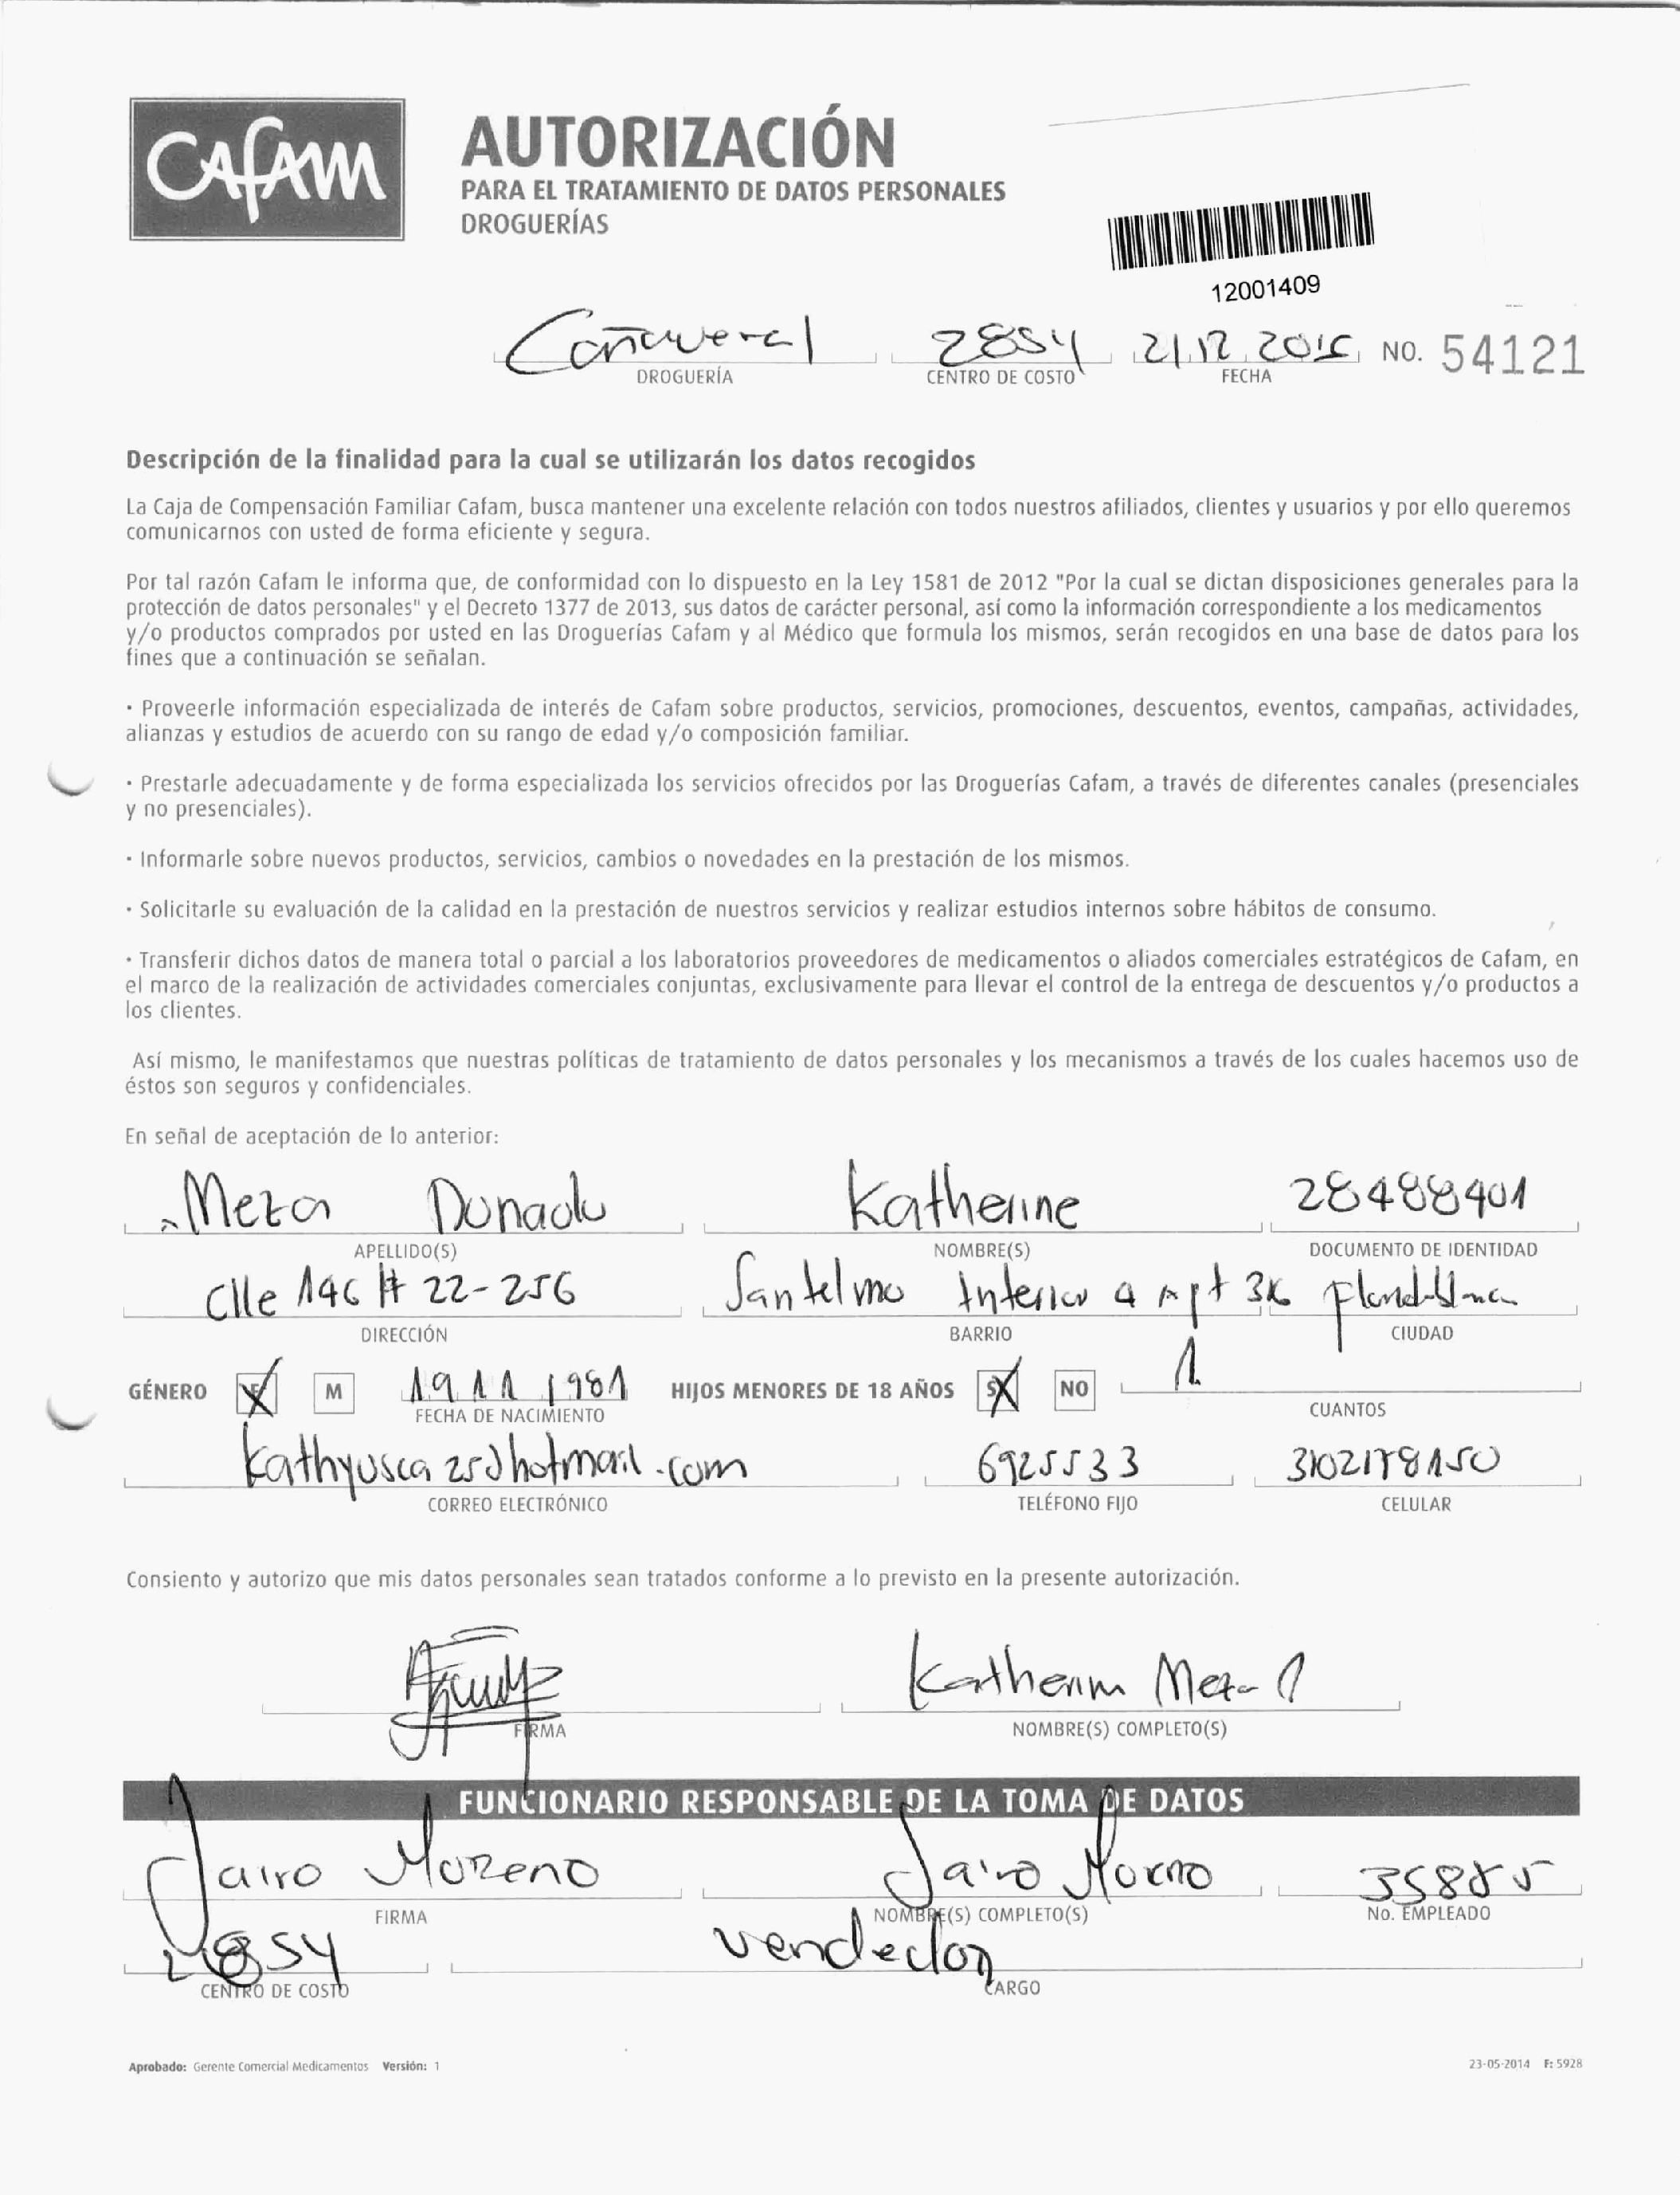 CAFAM
AUTORIZACIÓN
PARA EL TRATAMIENTO DE DATOS PERSONALES
DROGUERÍAS
12001409
Cañaveral 2854 21 12 2015 NO. 54121
DROGUERÍA CENTRO DE COSTO FECHA
Descripción de la finalidad para la cual se utilizarán los datos recogidos
La Caja de Compensación Familiar Cafam, busca mantener una excelente relación con todos nuestros afiliados, clientes y usuarios y por ello queremos
comunicarnos con usted de forma eficiente y segura.
Por tal razón Cafam le informa que, de conformidad con lo dispuesto en la Ley 1581 de 2012 "Por la cual se dictan disposiciones generales para la
protección de datos personales" y el Decreto 1377 de 2013, sus datos de carácter personal, así como la información correspondiente a los medicamentos
y/o productos comprados por usted en las Droguerías Cafam y al Médico que formula los mismos, serán recogidos en una base de datos para los
fines que a continuación se señalan.
· Proveerle información especializada de interés de Cafam sobre productos, servicios, promociones, descuentos, eventos, campañas, actividades,
alianzas y estudios de acuerdo con su rango de edad y/o composición familiar.
· Prestarle adecuadamente y de forma especializada los servicios ofrecidos por las Droguerías Cafam, a través de diferentes canales (presenciales
y no presenciales).
· Informarle sobre nuevos productos, servicios, cambios o novedades en la prestación de los mismos.
· Solicitarle su evaluación de la calidad en la prestación de nuestros servicios y realizar estudios internos sobre hábitos de consumo.
· Transferir dichos datos de manera total o parcial a los laboratorios proveedores de medicamentos o aliados comerciales estratégicos de Cafam, en
el marco de la realización de actividades comerciales conjuntas, exclusivamente para llevar el control de la entrega de descuentos y/o productos a
los clientes.
Así mismo, le manifestamos que nuestras políticas de tratamiento de datos personales y los mecanismos a través de los cuales hacemos uso de
éstos son seguros y confidenciales.
En señal de aceptación de lo anterior:
Meza Donado Katherine 28488401
APELLIDO(S) NOMBRE(S) DOCUMENTO DE IDENTIDAD
Clle 146 # 22-256 Santelmo Interior 4 Apt
DIRECCIÓN BARRIO CIUDAD
GÉNERO F M 19 11 1981 HIJOS MENORES DE 18 AÑOS SI NO 1
FECHA DE NACIMIENTO CUANTOS
6925533 3102178150
CORREO ELECTRÓNICO TELÉFONO FIJO CELULAR
Consiento y autorizo que mis datos personales sean tratados conforme a lo previsto en la presente autorización.
Meza D
FIRMA NOMBRE(S) COMPLETO(S)
FUNCIONARIO RESPONSABLE DE LA TOMA DE DATOS
Jairo Moreno Jairo Moreno 35885
FIRMA NOMBRE(S) COMPLETO(S) No. EMPLEADO
2854 vendedor
CENTRO DE COSTO CARGO
Aprobado: Gerente Comercial Medicamentos Versión: 1 23-05-2014 F: 5928